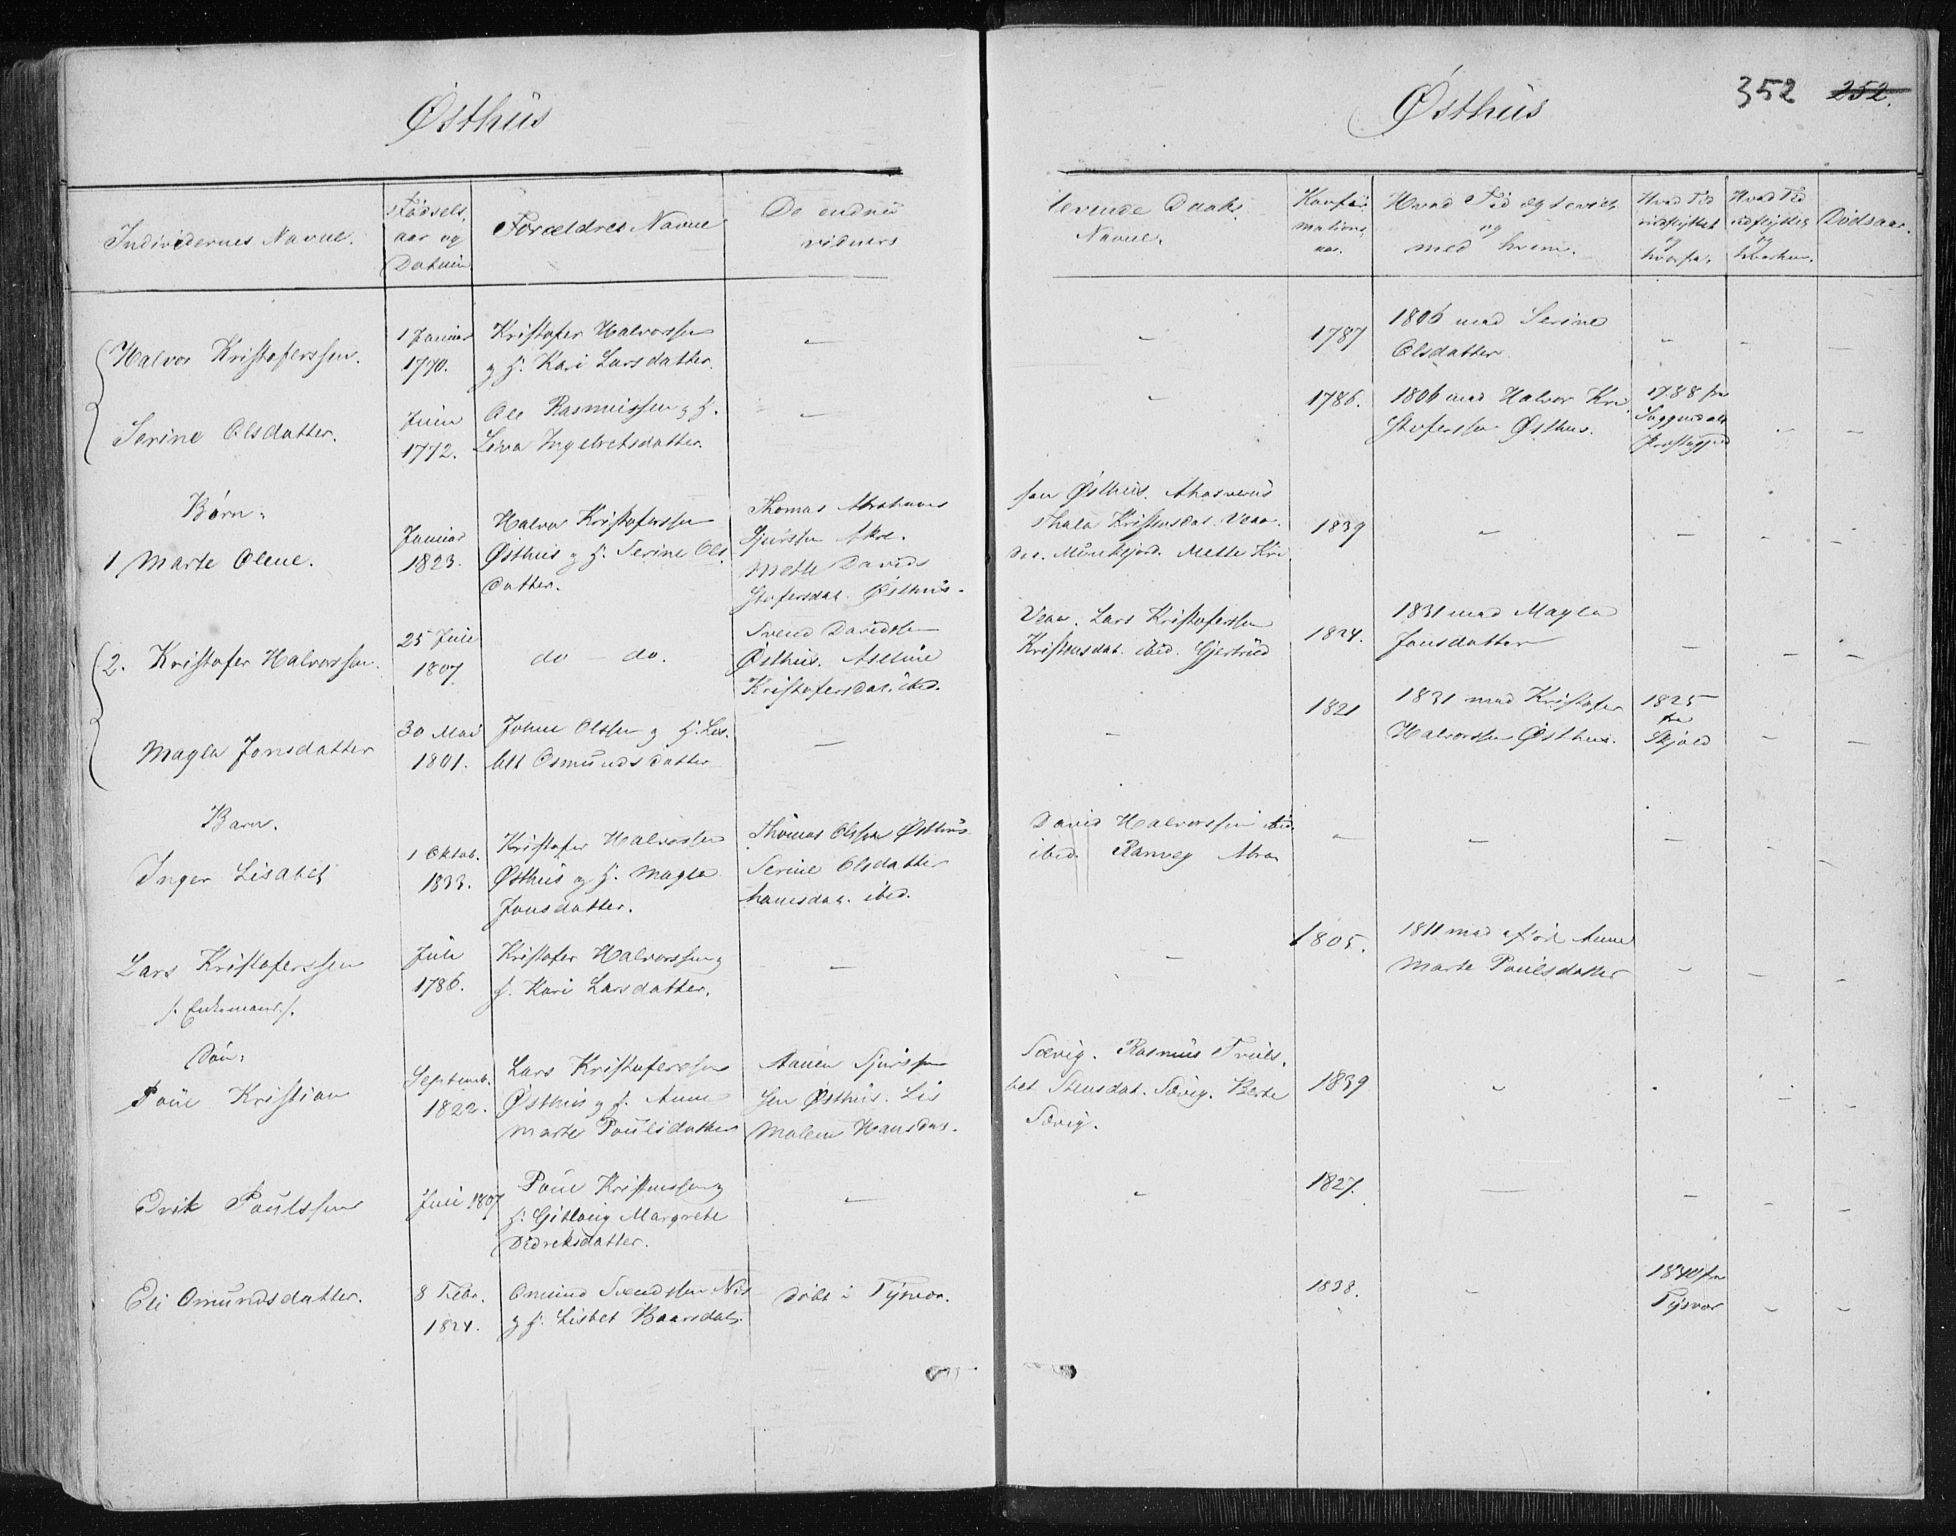 Østhus
Østhus
352 252.
Individernes Navne.
Fødsels
aar og
Datum
Forældres Navne
De endnu
vidners
levende Daabs
Navne.
Konfir
mations
aar.
Hvad Tid ægteviet
og
med hvem.
Hvad Tid
indflyttet
og
hvorfra.
Hvad Tid
udflyttet
og
hvorhen.
Dødsaar.
Halvor Kristoferssen.
1 Januar
1770.
Kristofer Halvorssen
og H. Kari Larsdatter.
1787
1806 med Serine
Olsdatter
Serine Olsdatter.
Juni
1772.
Ole Rasmussen og H.
Ingebretsdatter.
1786.
1806 med Halvor Kri
stofersen Østhus.
1788 fra
Børn:
1 Marte Olene.
Januar
1823.
Halvor Kristoferssen
Østhus og H. Serine Ols
datter.
Thomas Abrahams
Sjurssen Akre.
Mette Davids
stofersdat. Østhus.
sen Østhus. Ahasverus
Kristensdat. Veaa.
Mette Kri
1839
2. Kristofer Halvorssen.
25 Juli
1807
do - do.
Svend Davidssen
Østhus. Aseline
Kristofersdat. ibid.
Veaa. Lars Kristoferssen
Kristensdat. ibid. Gjertrud
1824.
1831 med Magla
Jonsdatter
Magla Jonsdatter
30 Mai
1801.
Johne Olssen og H. Lis.
bet Osmundsdatter
1821
1831 med Kristofer
Halvorssen Østhus.
1825
fra
Skjold
Barn.
Inger Lisabet
1 Oktob.
1833.
Kristofer Halvorssen
Østhus og H. Magla
Jonsdatter.
Thomas Olssen Østhus
Serine Olsdatter
hamsdat. ibid.
David Halvorssen ibid.
ibid. Ranveg Abra
Lars Kristoferssen
/: Enkemand :/.
Juli
1786.
Kristofer Halvorssen og
H. Kari Larsdatter.
1805.
1811 med afdøde Anne
Marte Poulsdatter
Søn:
Poul Kristian
Septemb.
1822.
Lars Kristoferssen
Østhus og H. Anne
Marte Poulsdatter
Sjurssen
sen Østhus. Lis
Malene Hansdat.
Sævig. Rasmus Truls.
bet Stensdat. Sævig. Berte
Sævig.
1839
Erik Poulssen
Juli 1807
Poul Kristenssen og
H. Gitlaug Margrete
Didreksdatter.
1827.
Eli Omundsdatter.
8 Febr.
1824.
Omund Svendssen
og H. Lisbet Baarsdat.
Døbt i Tysvær.
1838.
1840 fra
Tysvær